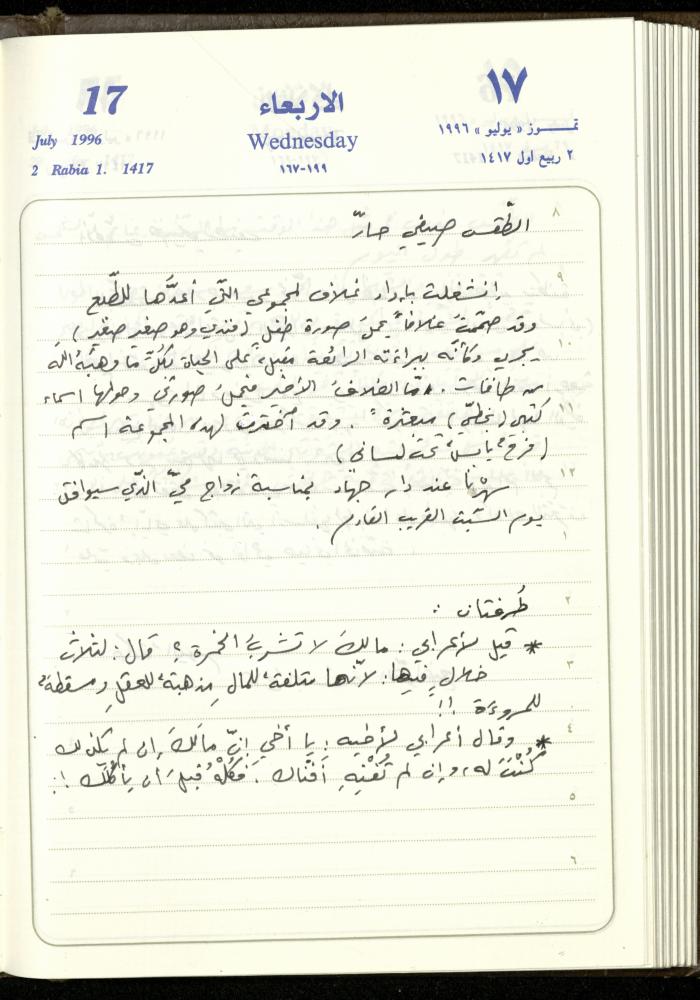 17
الاربعاء
١٧
July 1996
Wednesday
تمـــوز « يوليو » ١٩٩٦
2 Rabia 1. 1417
١٩٩-١٦٧
٢ ربيع اول ١٤١٧
٨
الطّقس صيفي حارّ
٩
انشغلت بإعداد غلاف لمجموعتي التّي أعدَّها للطّبع
وقد صمّمتُ غلافاً يحملُ صورة طفل (فندي وهو صغير صغير)
١٠
يجري وكأنّه ببراءته الرائعة مقبلٌ على الحياة بكلّ ما وهبَهُ الله
من طاقات. أمّا الغلافُ الأخير فيحملُ صورتي وحولها اسماء
١١
كتبي (بخطّي) مبعثرةً. وقد اخترت لهذه المجموعة اسم
(فرحٌ يابسٌ تحت لساني)
١٢
سهرْنا عند دار جهاد بمناسبة زواج ميّ الذّي سيوافق
يوم السّبت القريب القادم.
١
٢
طُرفتان:
* قيل لأعرابي: مالكَ لا تشربُ الخمرة؟ قال: لثلاث
٣
خلالٍ فيها: لأنّها متلفةٌ للمالِ مذهبةٌ للعقلِ ومسقطةٌ
للمروءة!!
٤
* وقال أعرابي لأخيه: يا أخي إنّ مالَكَ إن لم يكن لك
كُنْتَ له، وإن لم تُفْنِهِ أفناك. فكُلْهُ قبلَ أن يأكلَكَ!!
٥
٦